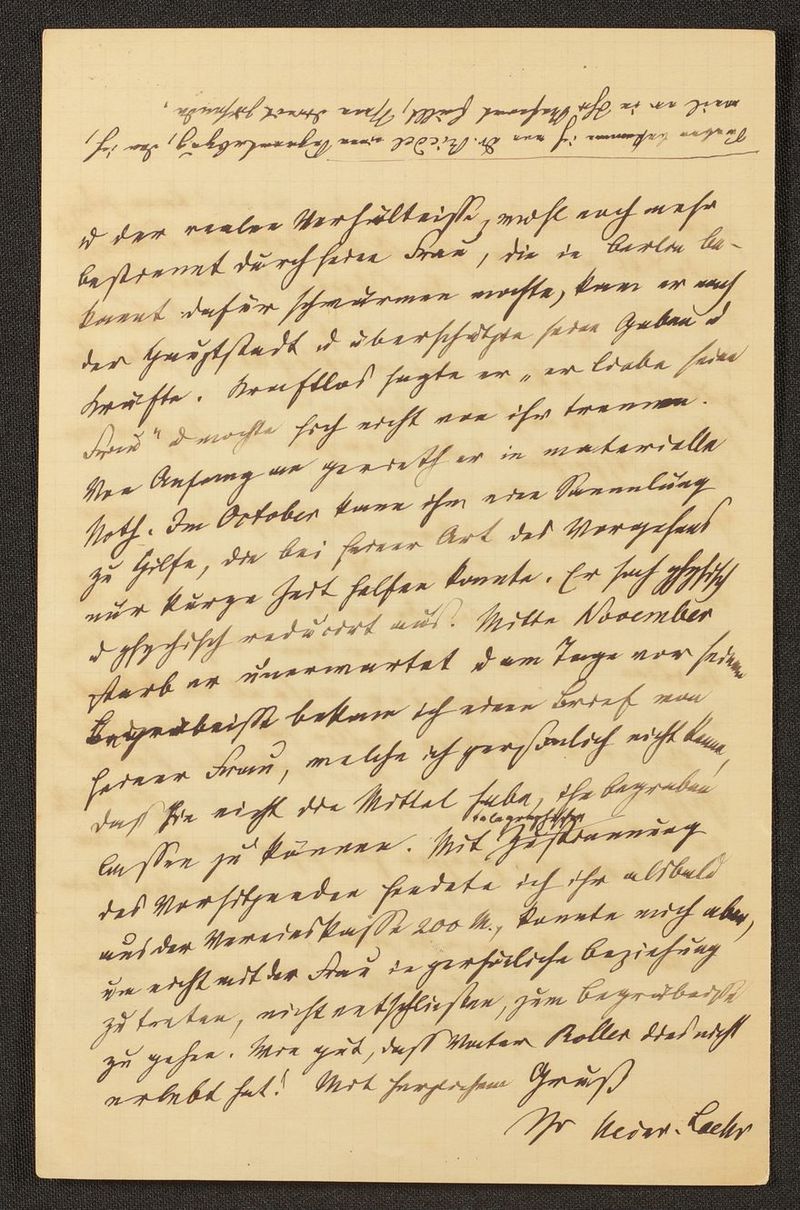 u der realen Verhältnisse, wohl noch mehr
bestimmt durch seine Frau, die in Berlin be-
kannt dafür schwärmen mochte, kam er nach
der Hauptstadt u überschätzte seine Gaben u
Kräfte. Kraftlos sagte er „er liebe seine
Frau“ u mochte sich nicht von ihr trennen.
Von Anfang an gerieth er in materielle
Noth. Im October kam ihm eine Sammlung
zu Hilfe, die bei seiner Art des Vorgehens
nur kurze Zeit helfen konnte. Er sah physisch
u psychisch reducirt aus. Mitte November
starb er unerwartet u am Tage vor seinem
Begräbnisse bekam ich einen Brief von
seiner Frau, welche ich persönlich nicht kenne,
daß sie nicht die Mittel habe, ihn begraben
lassen zu können. Mit telegraphischer Zustimmung
des Vorsitzenden sendete ich ihr alsbald
aus der Vereinskasse 200 M., konnte mich aber,
um nicht mit der Frau in persönliche Beziehung
zu treten, nicht entschließen, zum Begräbnisse
zu gehen. Wie gut, dass Vater Roller dies nicht
erlebt hat! Mit herzlichem Gruß
Ihr
Soeben bekomme ich von Dr. Riedel einen, den ich,
weil er in Ihr Referat fällt, Ihnen